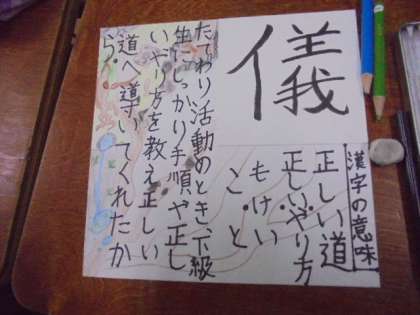 儀
漢字の意味
正しい道
正しいやり方
もけい
こと
たてわり活動のとき、下級
生にしっかり手順や正し
いやり方を教え正しい
道へ導いてくれたか
ら。